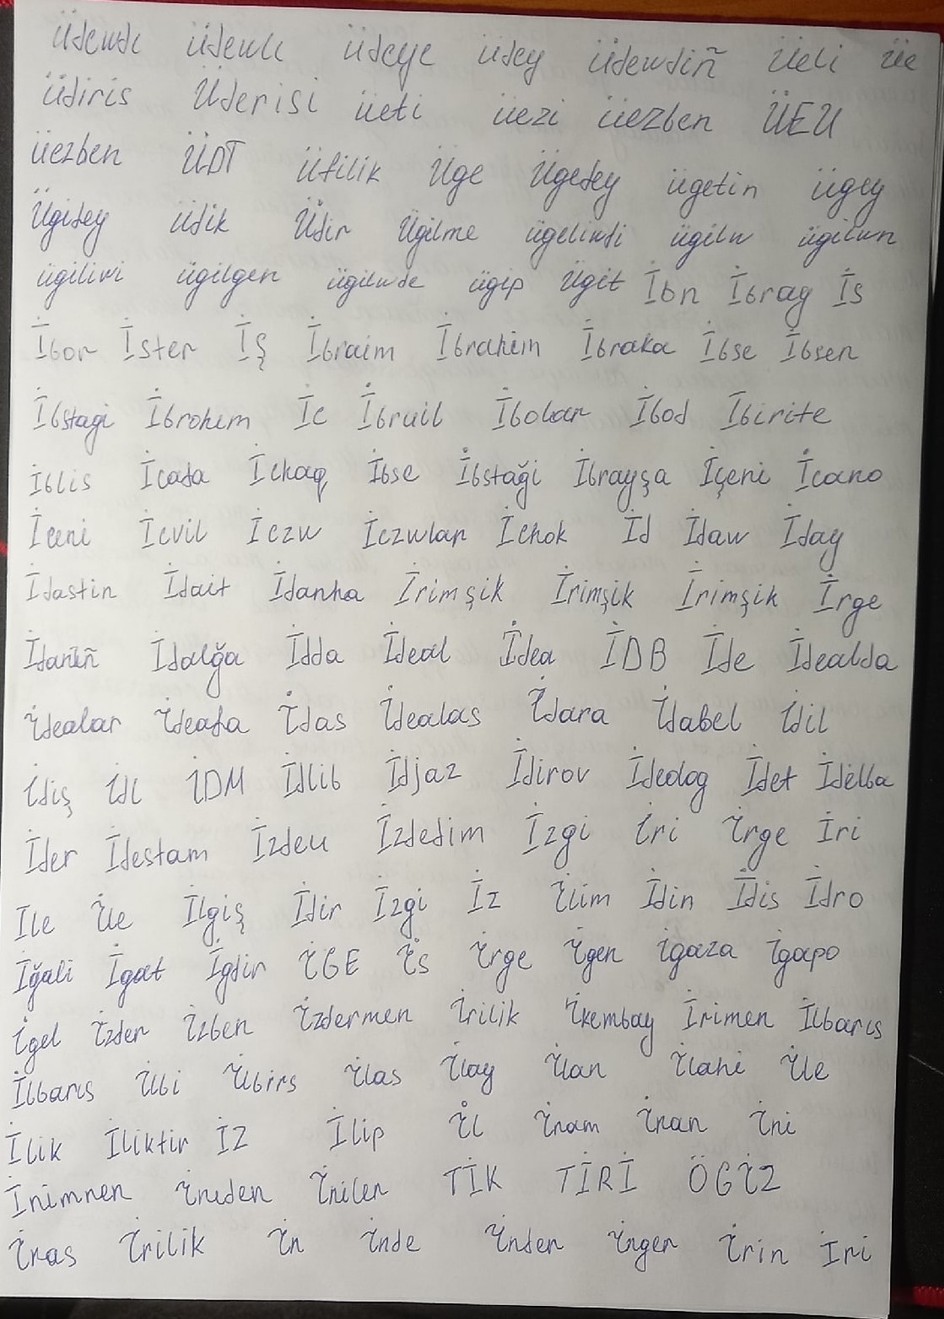 Üdewde Üdewle Üdeye Üdey Üdewdiñ Üeli Üe
Üdiris Üderisi üeti üezi üezben ÜEU
üezben ÜDT Üfilik Üge Ügedey ügetin ügey
Ügidey Üdik Üdir Ügilme ügelindi ügilw
ügilgen ügilwde ügip Ügit İbn İbrag İs
İbor İster İŞ İbraim İbrahim İbraka İbse İbsen
İbstagi İbrohim İc İbruil İbolar İbod İbirite
İblis İcada İckaq İbse İbstaği İbrayşa İçeni İcano
İceni İcvil İczw İczwlar İchok İd İdaw İday
İdastin İdait İdanha İrimşik İrimşik İrimşik İrge
İdaniñ İdalğa İdda İdeal İdea İDB İde İdealda
İdealar İdeada İdas İdealas İdara İdabel İdil
İdiş İdl İDM İdlib İdjaz İdirov İdeolog İdet İdelba
İder İdestam İzdeu İzdedim İzgi İri İrge İri
Ile İle İlgiş İdir İzgi İz İlim İdin İdis İdro
İğali İgat İgdir İGE İs İrge İgen İgaza İgapo
İgel İzder İzben İzdermen İrilik İkembay İrimen İlbarıs
İlbarıs İlbi İlbirs İlas İlay İlan İlahi İle
İlik İliktir İZ İlip İl İnam İnan İni
İnimnen İniden İniler TİK TİRİ ÖGİZ
İnas İrilik İn İnde İnder İnger İrin İni